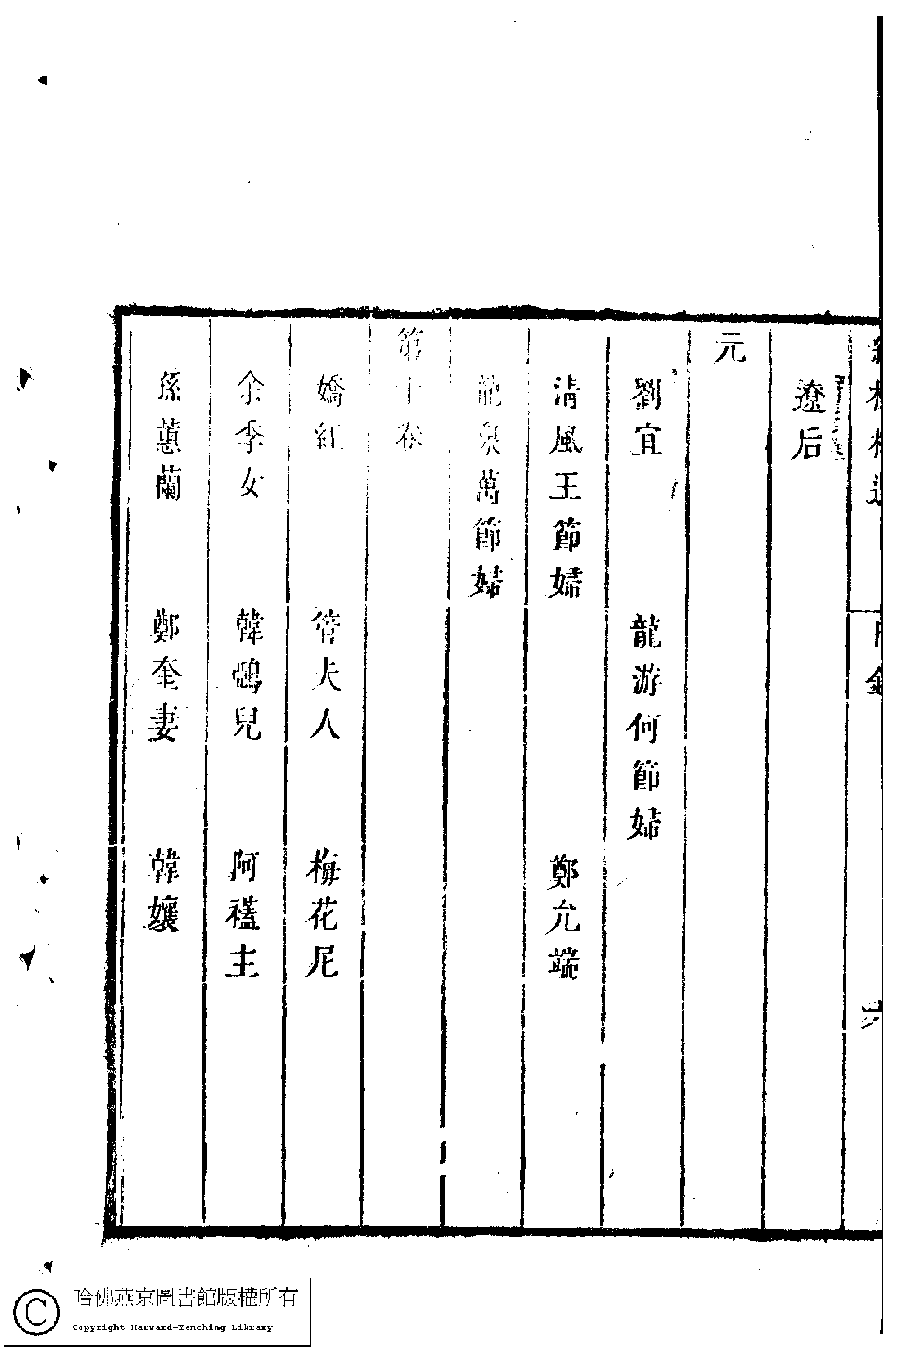 遼后
元
劉宜　龍游何節婦
清風王節婦　鄭允端
龍泉萬節婦
第十卷
嬌紅　管夫人　梅花尼
余季女　韓鸚兒　阿𧞫主
孫蕙蘭　鄭奎妻　韓孃
六
哈佛燕京圖書館版權所有
Copyright Harvard-Yenching Library